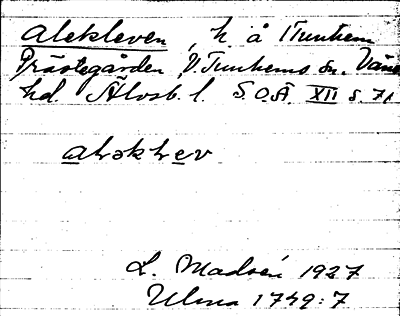 Alekleven, h. å Tunhem
Prästegården, V. Tunhems sn. Väne
hd. Älvsb. l. S.O.Ä. XII s. 71
L. Madsén 1927
Ulma 1749:7